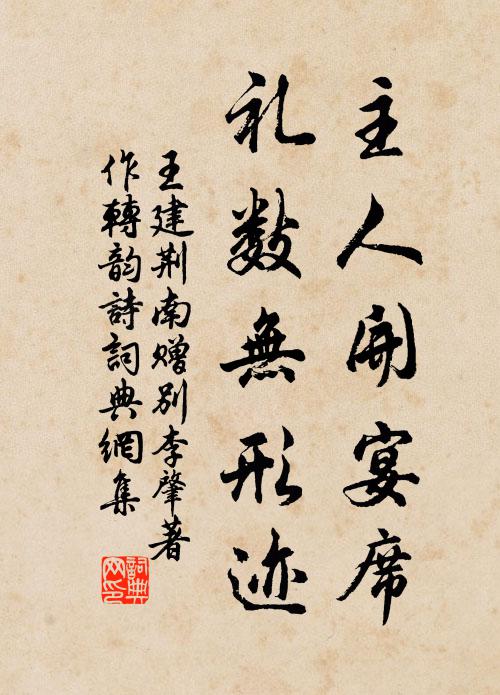 主人開宴席
礼数無形迹
王建荆南贈别李肇著
作轉韵詩詞典網集
詞典
网印